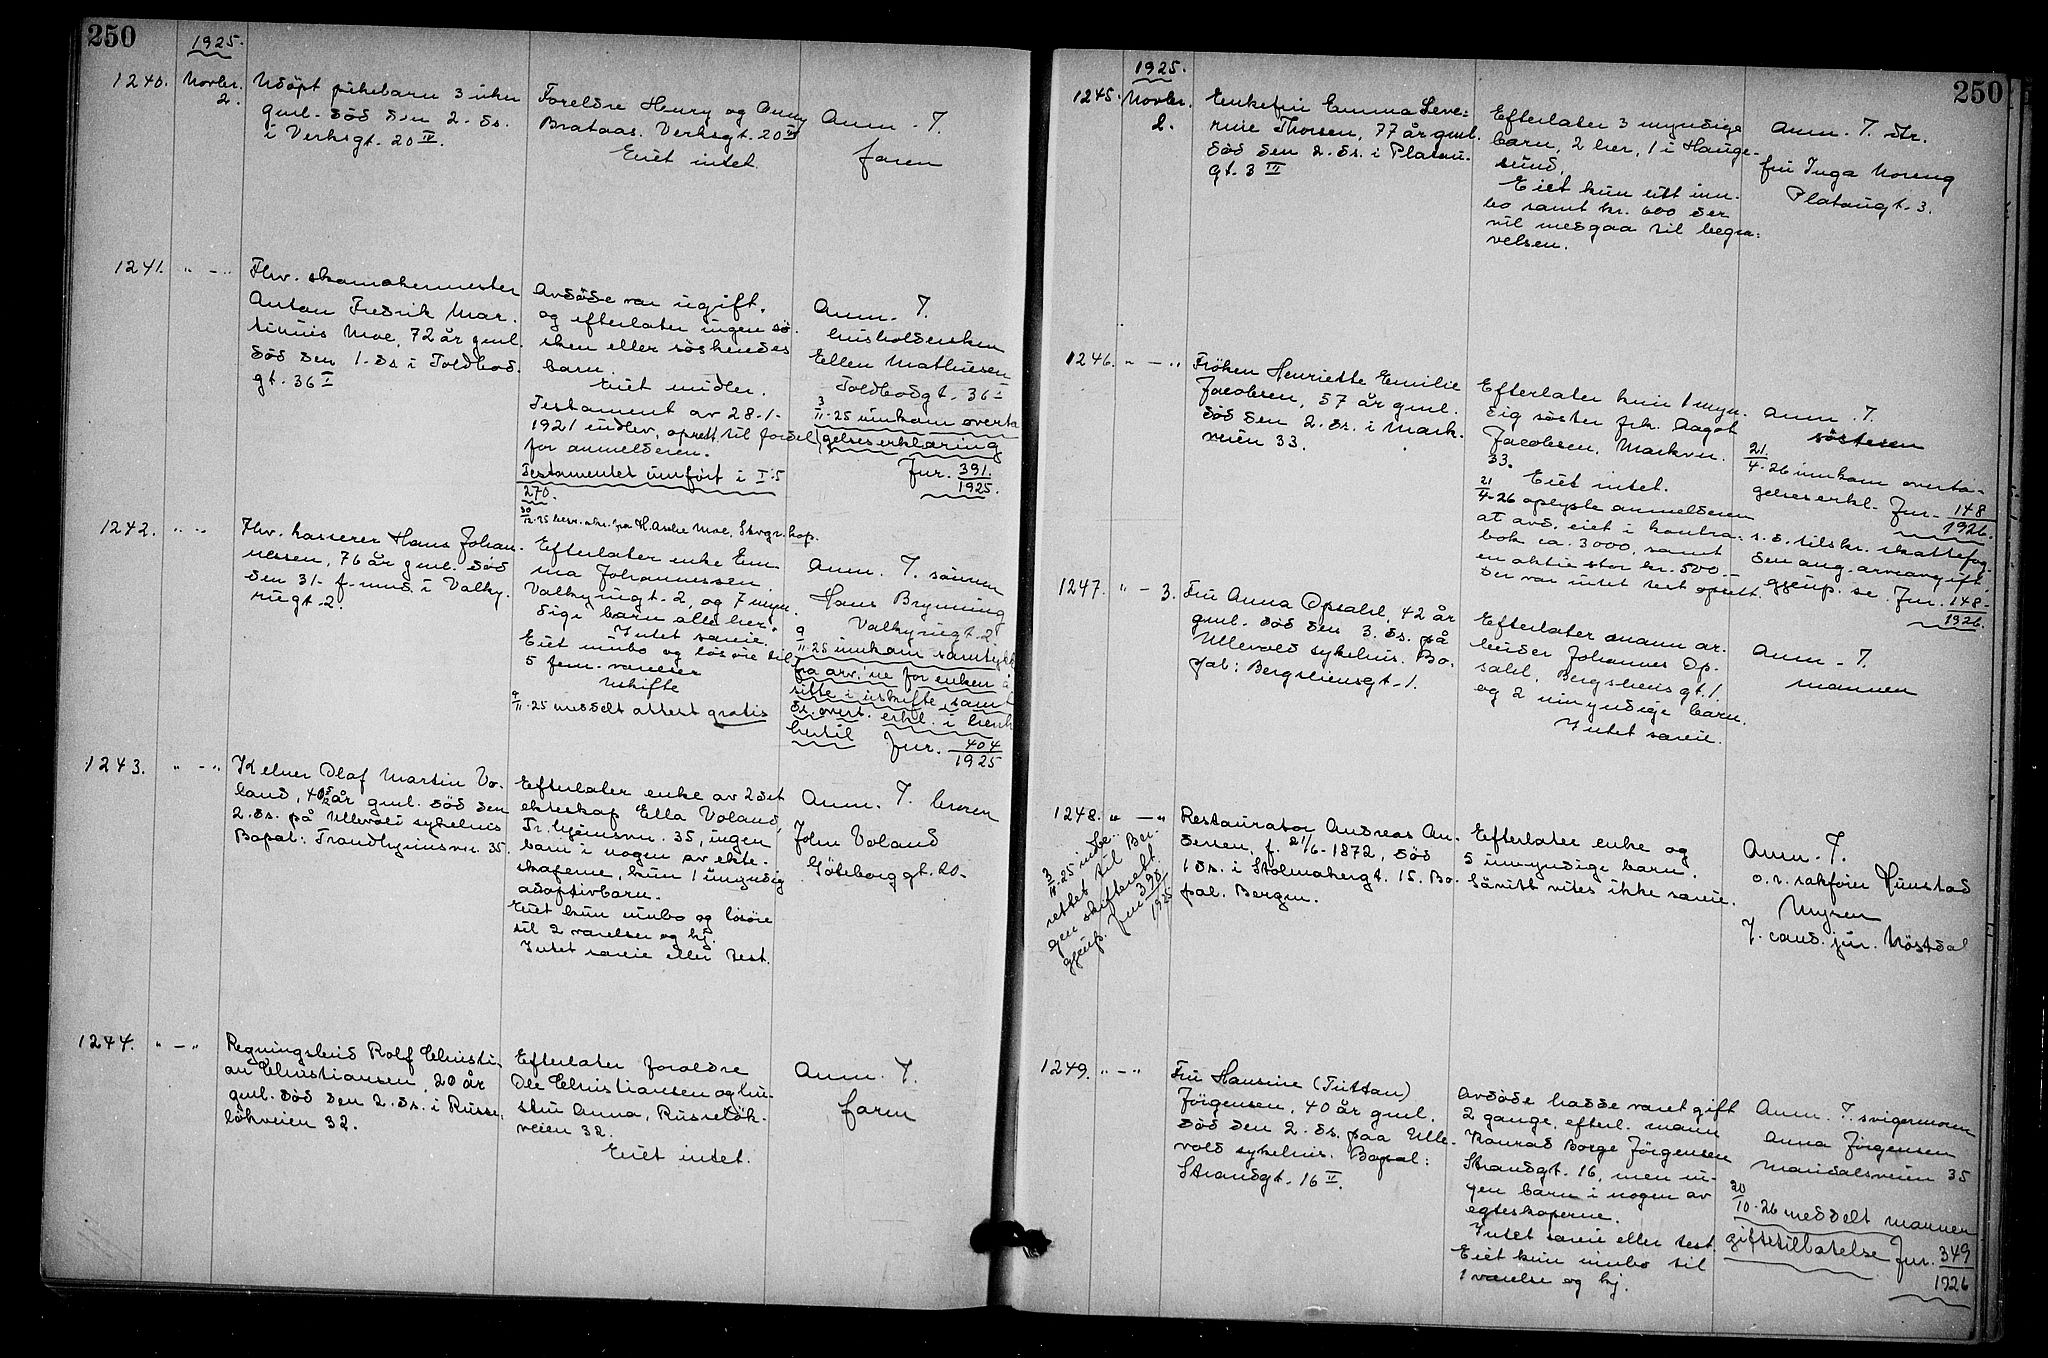 250
1925.
1240.
Novbr.
2.
Udöpt pikebarn 3 uker
gml. död den 2. ds.
i Verksgt. 20 IV.
Foreldre Henry og Anny
Brataas. Verksgt. 20 IV
Eiet intet.
Anm. T.
faren
1241.
" - "
Fhv. skomakermester
Anton Fredrik Mar-
tinius Moe, 72 år gml.
död den 1. ds. i Toldbod.
gt. 36 I
Avdöde var ugift.
og efterlater ingen sö-
sken eller söskendes
barn.
Eiet midler.
Testament av 28-1-
1921 indlev. oprett. til fordel
for anmelderen.
Testamentet innfört i I.5
270.
30/12-25 besv. skr. fra H. Asche Moe, Skrgr. kop.
Anm. T.
husholdersken
Ellen Mathiesen
Toldbodgt. 36 I
3/11-25 innkom overta
gelseserklæring
Jnr. 391.
1925.
1242.
" - "
Fhv. kasserer Hans Johan-
nessen, 76 år gml. död
den 31. f. mnd. i Valky-
riegt. 2.
Efterlater enke Em-
ma Johannessen
Valkyriegt. 2, og 7 myn-
dige barn alle her.
Intet særeie.
Eiet innbo og lösöre til
5 fem værelser
Uskifte
9/11-25 meddelt attest gratis
Anm. T. sönnen
Hans Brynning
Valkyriegt. 2
9/11-25 innkom samtykke
fra arv:ne for enken å
sitte i uskifte, samt
ds. overt. erkl. i henh
hertil Jnr. 404
1925
1243.
" - "
Kelner Olaf Martin Vo-
land, 40 5/12 år gml. död den
2. ds. på Ullevål sykehus
Bopal: Trondhjemsvn. 35.
Efterlater enke av 2det
ekteskap Ella Voland,
Tr. hjemsvn. 35, ingen
barn i nogen av ekte-
skapene, kun 1 umyndig
adoptivbarn.
Eiet kun innbo og lösöre
til 2 værelser og kj.
Intet særeie eller test.
Anm. T. broren
John Voland
Göteborggt. 20.
1244.
" - "
Regningsbud Rolf Christi-
an Christiansen, 20 år
gml. död den 2. ds. i Russe-
lökveien 32.
Efterlater foreldre
Ole Christiansen og hu-
stru Anna, Russelök-
veien 32.
Eiet intet.
Anm. T.
faren
250
1925.
1245.
Novbr.
2.
Enkefru Emma Seve-
rine Thorsen, 77 år gml.
död den 2. ds. i Platou-
gt. 3 III
Efterlater 3 myndige
barn, 2 her, 1 i Hauge-
sund.
Eiet kun litt inn-
bo samt kr. 600 der
vil medgaa til begra-
velsen.
Anm. T. dtr.
fru Inga Noreng
Platougt. 3.
1246.
" - "
Fröken Henriette Emilie
Jacobsen, 57 år gml.
död den 2. ds. i Mark-
veien 33.
Efterlater kun 1 myn-
dig söster frk. Aagot
Jacobsen, Markvn.
33.
Eiet intet.
21/4-26 oplyste anmelderen
at avd. eiet i kontra-
bok ca. 3000, samt
en aktie stor kr. 500.-
Der var intet test. oprett.
Anm. T.
sösteren
21/4-26 innkom overta-
gelseserkl. Jnr. 148
1926.
s. d. tilskr. skattefog-
den ang. arveavgift,
gjenp. se Jnr. 148
1926.
1247.
" - 3.
Fru Anna Opsahl, 42 år
gml. död den 3. ds. på
Ullevold sykehus. Bo-
pal: Bergsliensgt. 1.
Efterlater mann ar-
beider Johannes Op-
sahl, Bergsliensgt. 1.
og 2 umyndige barn.
Intet særeie.
Anm. T.
mannen
1248.
" - "
3/11-25 indbe-
rettet til Ber-
gen skifterett.
gjenp. Jnr. 390
1925
Restauratør Andreas An-
dersen, f. 21/6-1872, död
1 ds. i Holmabergt. 15. Bo-
pal. Bergen.
Efterlater enke og
5 umyndige barn.
Såvitt vites ikke særeie.
Anm. T.
o. r. sakförer Hunstad
Myren
v. cand. jur. Nöstdal
1249.
" - "
Fru Hansine (Tuttan)
Jörgensen, 40 år gml.
död den 2. ds. paa Ulle-
vold sykehus. Bopal:
Strandgt. 16 II.
Avdöde hadde været gift
2 gange, efterl. mann
Konrad Borge Jörgensen
Strandgt. 16, men in-
gen barn i nogen av
egteskaperne.
Intet særeie eller test.
Eiet kun innbo til
1 værelse og kj.
Anm. T. svigermoren
Anna Jörgensen
Maridalsveien 35
20/10-26 meddelt mannen
giftetillatelse Jnr. 349
1926